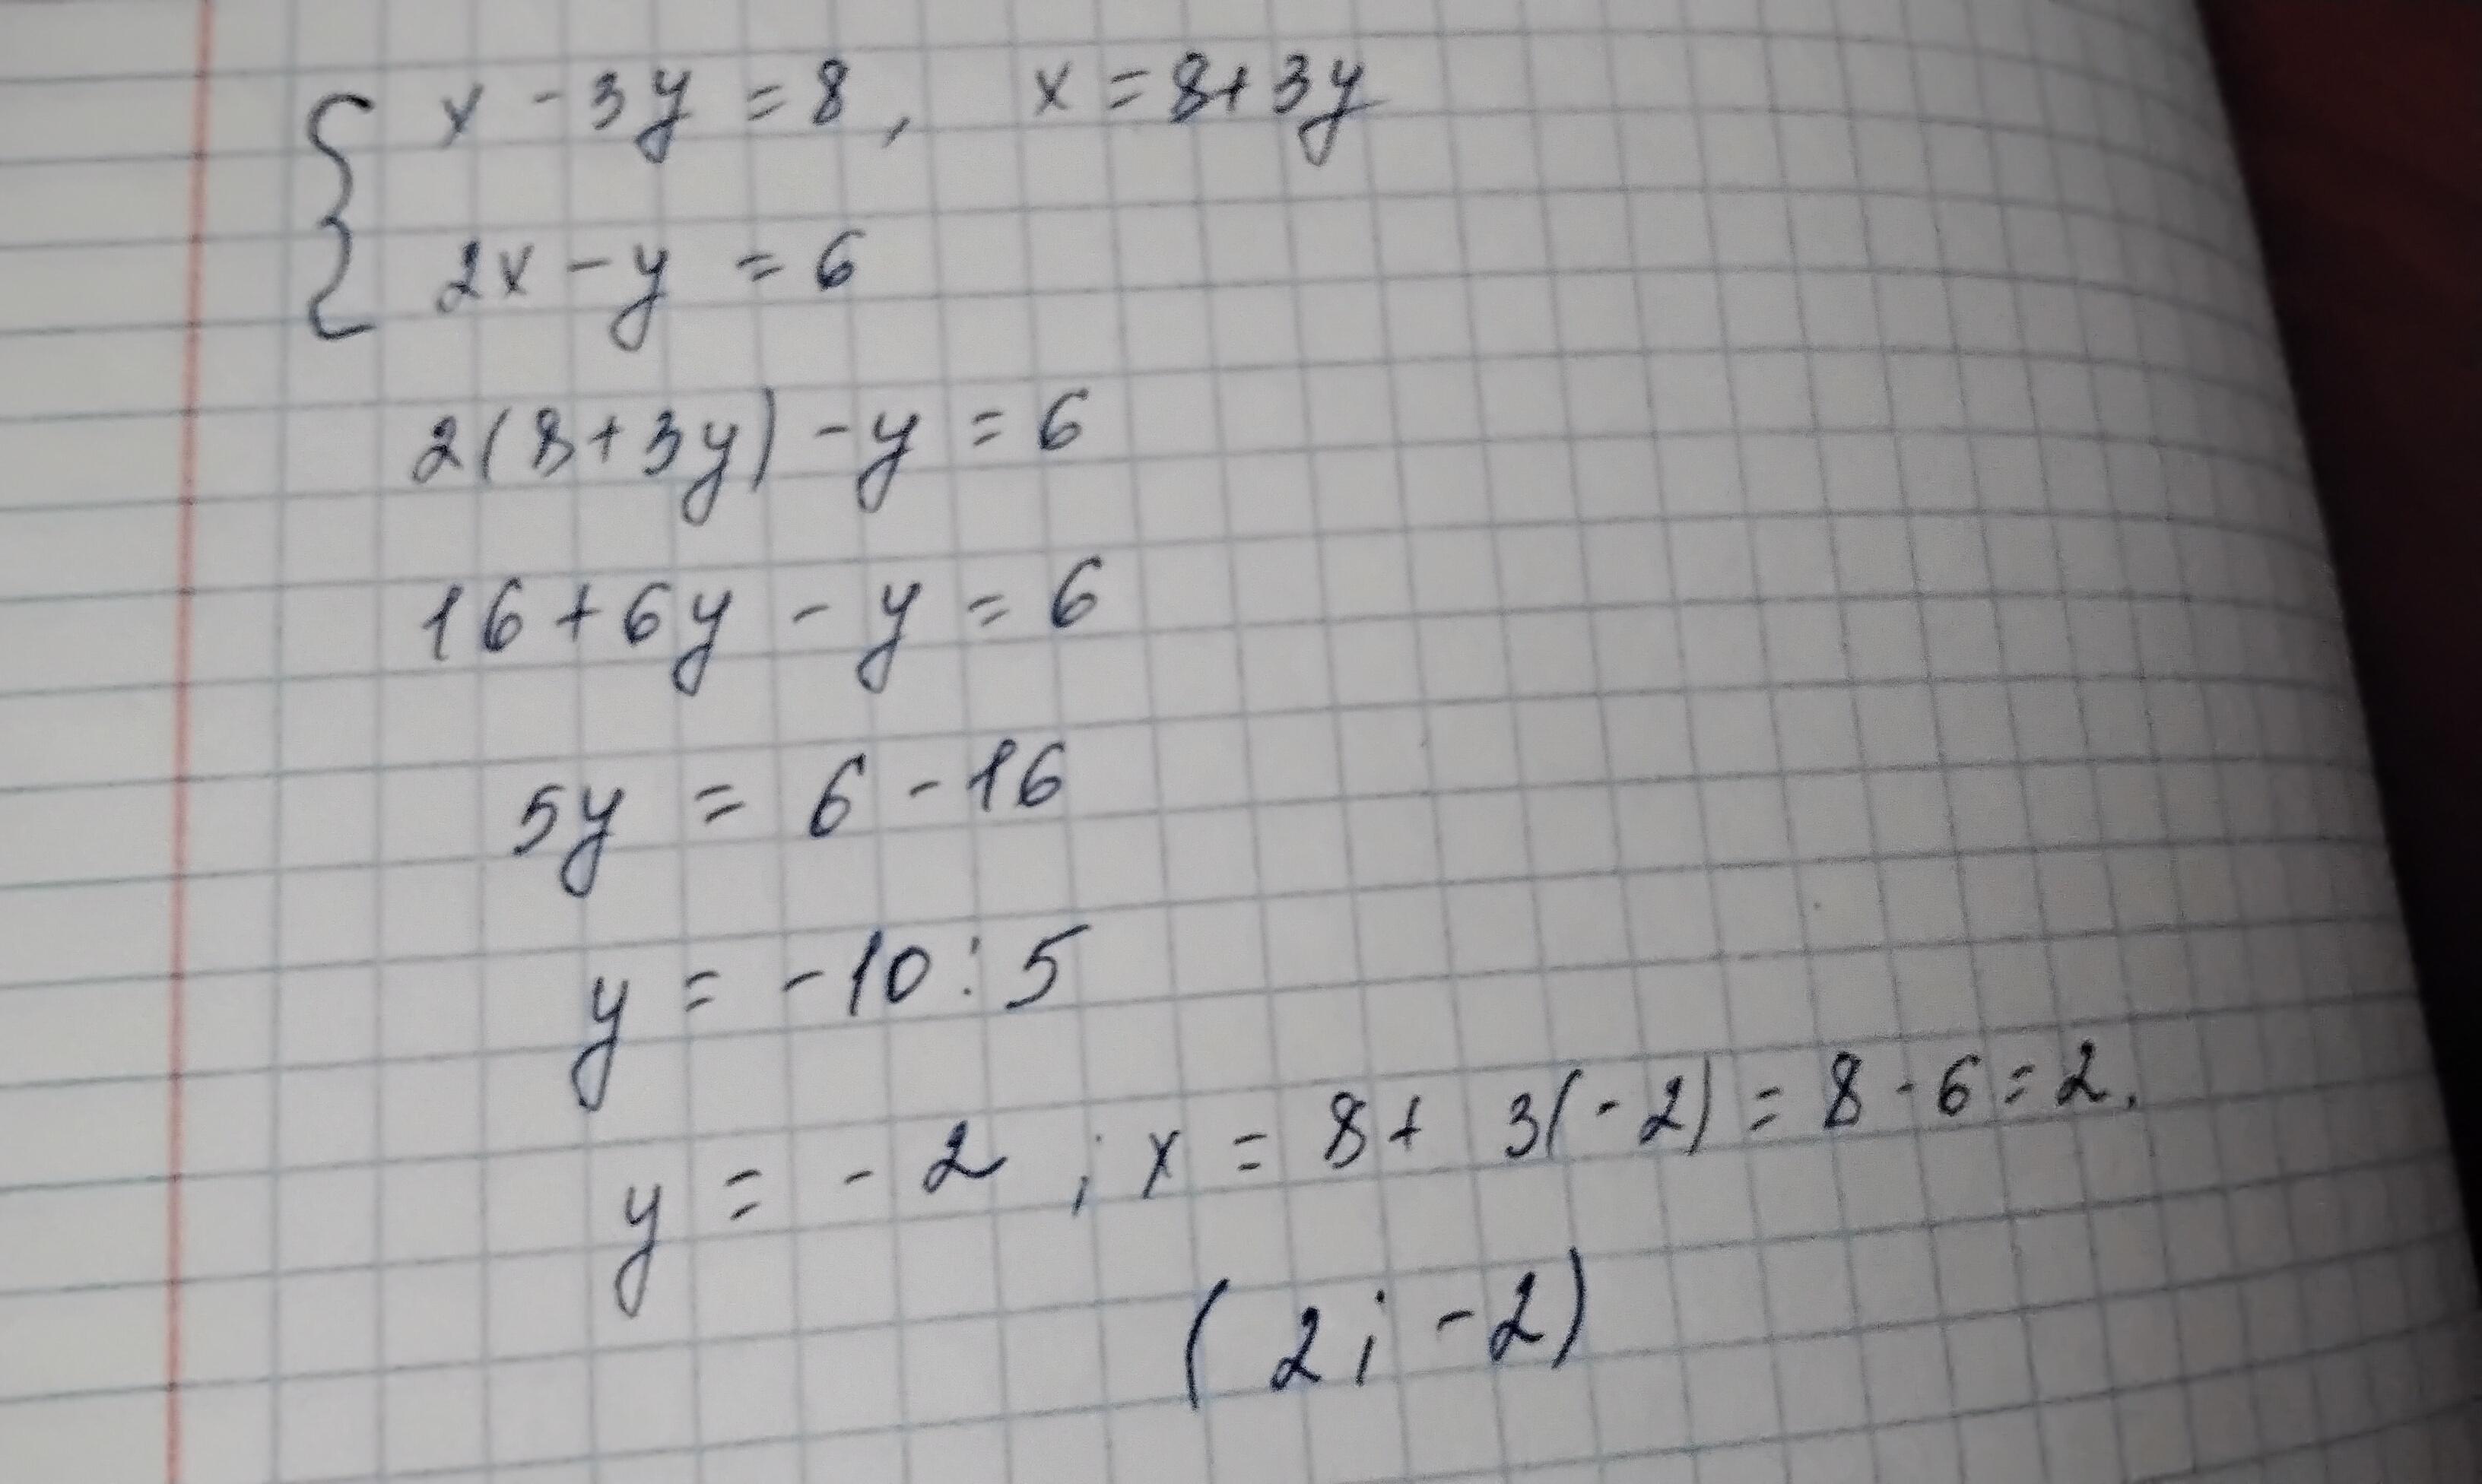 { x - 3y = 8, x = 8+3y
2x - y = 6
2(8+3y) - y = 6
16+6y - y = 6
5y = 6 - 16
y = -10:5
y = -2 ; x = 8+ 3(-2) = 8-6=2.
(2; -2)